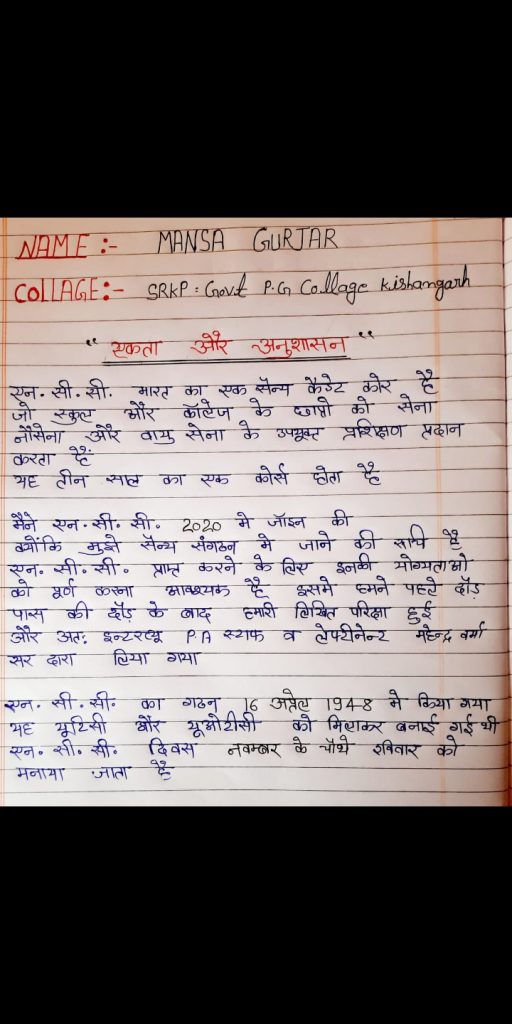 NAME :- MANSA GURJAR
COLLAGE:- SRKP. Govt P.G Collage Kishangarh
“ एकता और अनुशासन ”
एन. सी. सी. भारत का एक सैन्य कैडेट कोर है
जो स्कुल और कॉलेज के छात्रो को सेना
नौसेना और वायु सेना के उपयुक्त प्रशिक्षण प्रदान
करता है
यह तीन साल का एक कोर्स होता है
मैने एन. सी. सी. 2020 मे जॉइन की
क्योंकि मुझे सैन्य संगठन मे जाने की रूचि है
एन. सी. सी. प्राप्त करने के लिए इनकी योग्यताओ
को पूर्ण करना आवश्यक है इसमे हमने पहले दौड़
पास की दौड़ के बाद हमारी लिखित परिक्षा हुई
और अतः इन्टरव्यू P.A स्टाफ व लेफ्टीनेन्ट महेन्द्र वर्मा
सर द्वारा लिया गया
एन. सी. सी. का गठन 16 अप्रेल 1948 मे किया गया
यह यूटिसी और यूओटीसी को मिलाकर बनाई गई थी
एन. सी. सी. दिवस नवम्बर के चौथे रविवार को
मनाया जाता है